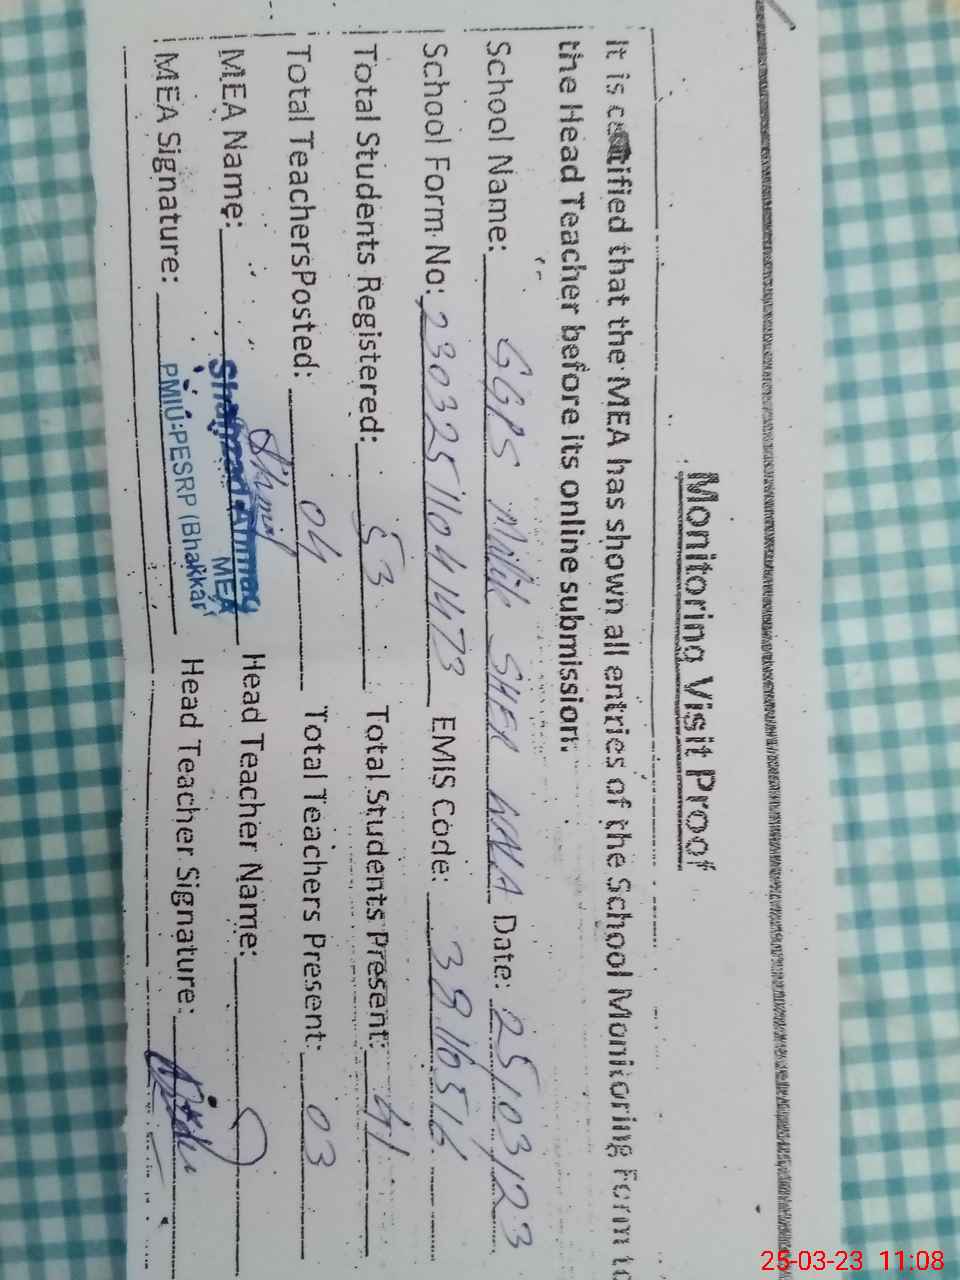 Monitoring Visit Proof
It is certified that the MEA has shown all entries of the School Monitoring Form to
the Head Teacher before its online submission.
School Name: GGPS Malik SHER WALA Date: 25/03/23
School Form No: 23032511041473 EMIS Code: 38110516
Total Students Registered: 53 Total Students Present: 41
Total TeachersPosted: 04 Total Teachers Present: 03
MEA Name: Head Teacher Name:
MEA
MEA Signature: PMIU-PESRP (Bhakkar) Head Teacher Signature:
25-03-23 11:08